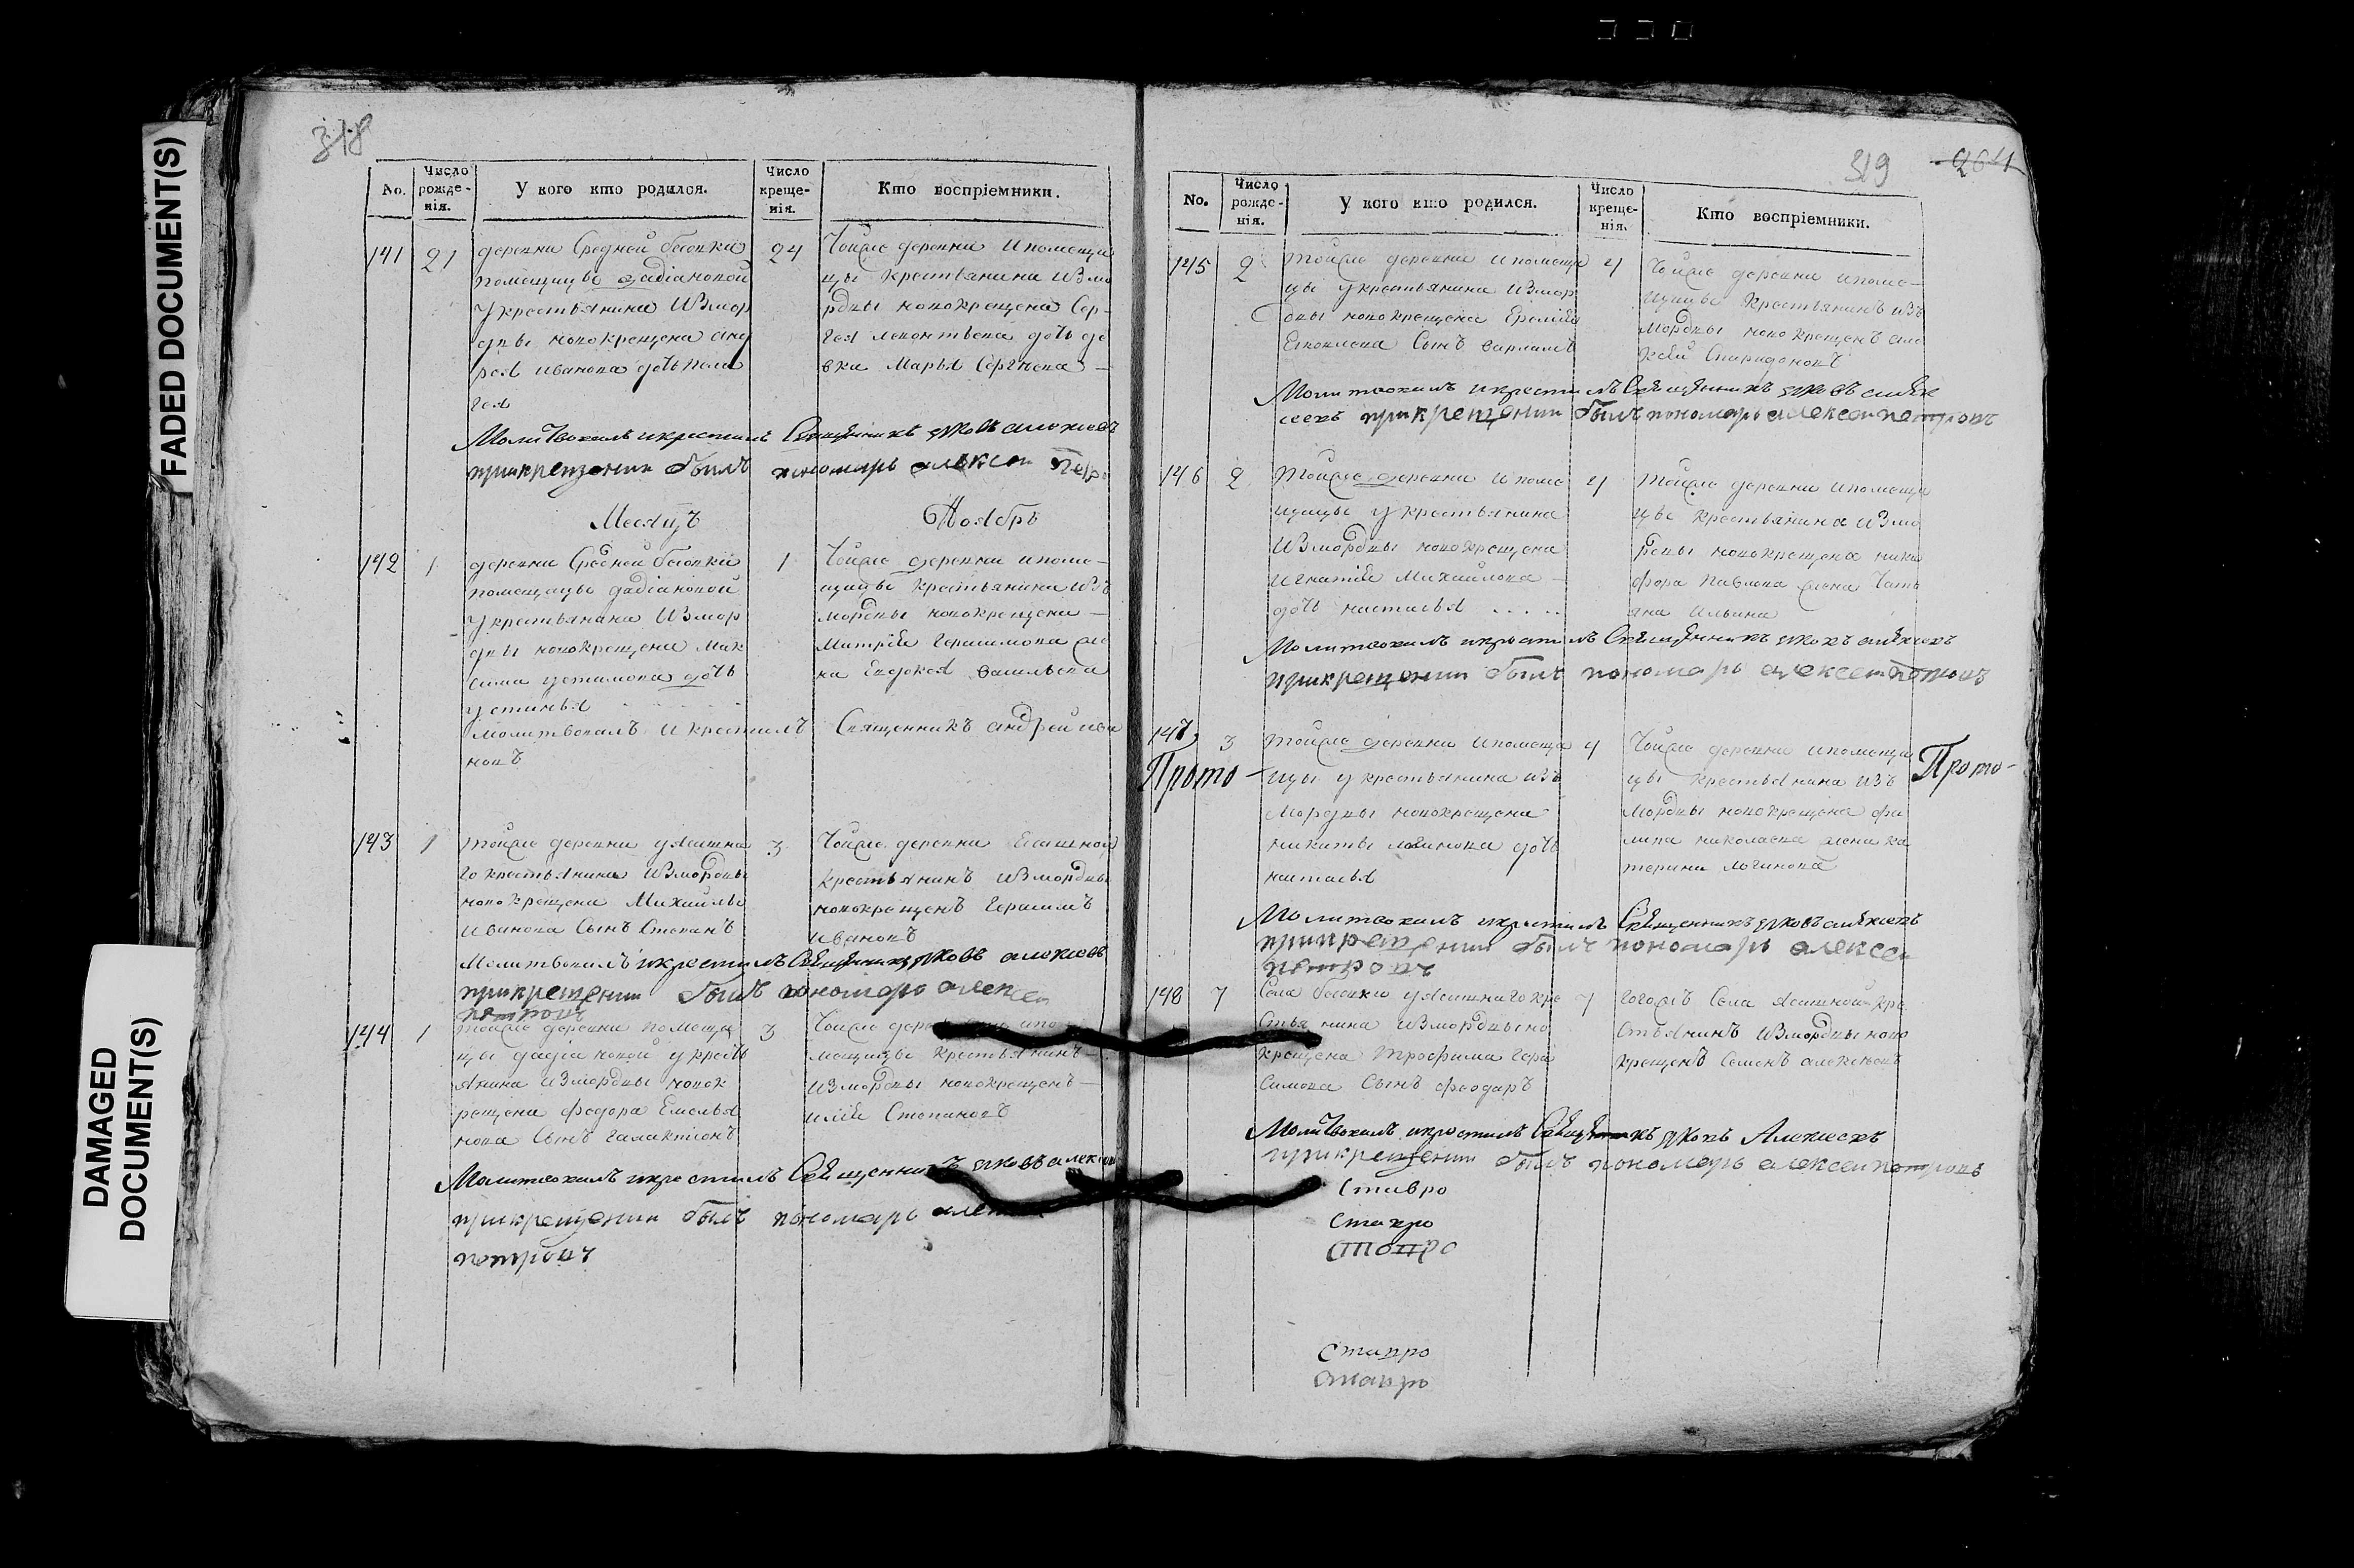 FADED DOCUMENT(S)
DAMAGED
DOCUMENT(S)
318
No.
Число
рожде-
нія.
У кого кто родился.
Число
креще-
нія.
Кто воспріемники.
141
21
деревни Средней
помещицы дадіановой
у крестьянина Измор
двы новокрещена анд
рея иванова дочь пела
гея
24
Тойже деревни ипомещи
цы крестьянина Измо
рдвы новокрещена Сер-
гея леонтьева дочь де
вка Марья Сергѣева
Молитвовалъ икрестилъ Священникъ алексеевъ
прикрещении былъ пономарь алексеи
Месяцъ Ноябрь
142
1
деревни Средней
помещицы дадіановой
у крестьянина Измор
двы новокрещена Мак
сима устимова дочь
устинья
1
Тойже деревни ипоме-
щицы крестьянина Изъ
мордвы новокрещена
Митрѣя Герасимова же
на Евдокея васильева
молитвовалъ и крестилъ Священникъ андрей ива
новъ
143
1
тойже деревни уясашна
го крестьянина Измордвы
новокрещена Михайлы
Иванова Сынъ Степанъ
3
Тойже деревни
крестьянинъ Измордвы
новокрещенъ Герасимъ
Ивановъ
Молитвовалъ икрестилъ Священникъ алексеевъ
прикрещении былъ пономарь алексеи
петровъ
144
1
тойже деревни помещи
цы дадіановой у кресть
янина Измордвы новок
рещена федора Емелья
нова Сынъ галактіонъ
3
Тойже деревни ипо
мещицы крестьянинъ
Измордвы новокрещенъ
илія Степановъ
Молитвовалъ икрестилъ Священникъ
прикрещении былъ пономарь
петровъ
319
264
No.
Число
рожде-
нія.
У кого кто родился.
Число
креще-
нія.
Кто воспріемники.
145
2
тойже деревни ипомещи
цы укрестьянина Измор
двы новокрещена
Сынъ варламъ
4
Тойже деревни ипоме-
щицы крестьянинъ изъ
мордвы новокрещенъ але
ксей Спиридоновъ
Молитвовалъ икрестилъ Священникъ
прикрещении былъ пономарь алексеи петровъ
146
2
Тойже деревни ипоме
щицы у крестьянина
Измордвы новокрещена
Игнатія Михайлова
дочь настасья
4
Тойже деревни ипомещи
цы крестьянина Измо
рдвы новокрещена ники
фора павлова жена Тать
яна Ильина
Молитвовалъ икрестилъ Священникъ
прикрещении былъ пономарь алексеи петровъ
147
3
тойже деревни ипомещи
цы у крестьянина изъ
Мордвы новокрещена
никиты логинова дочь
настасья
4
Тойже деревни ипомещи
цы крестьянина изъ
Мордвы новокрещена фи
липа николаева жена ка
терина логинова
Прото-
Прото-
Молитвовалъ икрестилъ Священникъ
прикрещении былъ пономарь алексеи
петровъ
148
7
Села уясашнаго кре
стьянина Измордвы но
крещена Трофима Гера
симова Сынъ феодаръ
7
тогожъ Села ясашной кре
стьянинъ Измордвы ново
крещенъ Семенъ алексеевъ
Молитвовалъ икрестилъ Священникъ Алексеевъ
прикрещении былъ пономарь алексеи петровъ
Ставро
Ставро
Ставро
Ставро
Ставро